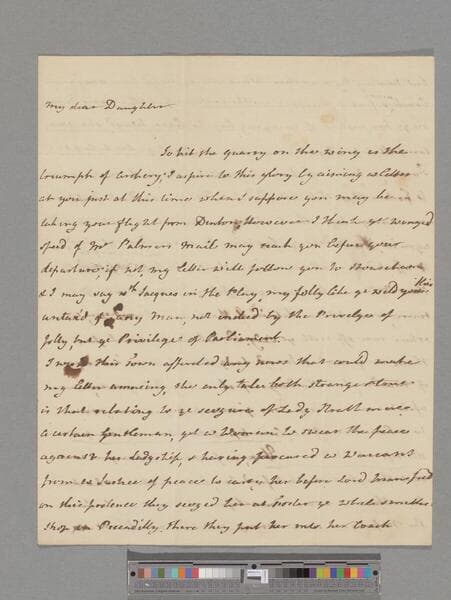 My dear Daughter
To hit the quarry on the wing is the
triumph of Archery; I aspire to this glory by aiming a letter
at you just at this time when I suppose you may be
taking your flight from Denton, However I think ye winged
speed of Mr Palmers Mail may reach you before your
departure; if not my letter will follow you to
& I may say wth Jaques in the Play, my folly like ye wild goose flies
unclaimd of any Man, not ended by the Privelege of
folly but ye Privilege of Parliament.
I wish this Town afforded any news that could make
my letter amusing, the only tale both strange & true
is that relating to ye seizure of Lady Strathmore
a certain Gentleman, get a Woman to swear the peace
against her Ladyship, & having procured a Warrant
from a Justice of peace to carry her before Lord Mansfield
on this pretence they seized her at Foster ye
shop in Piccadilly. there they put her into her Coach